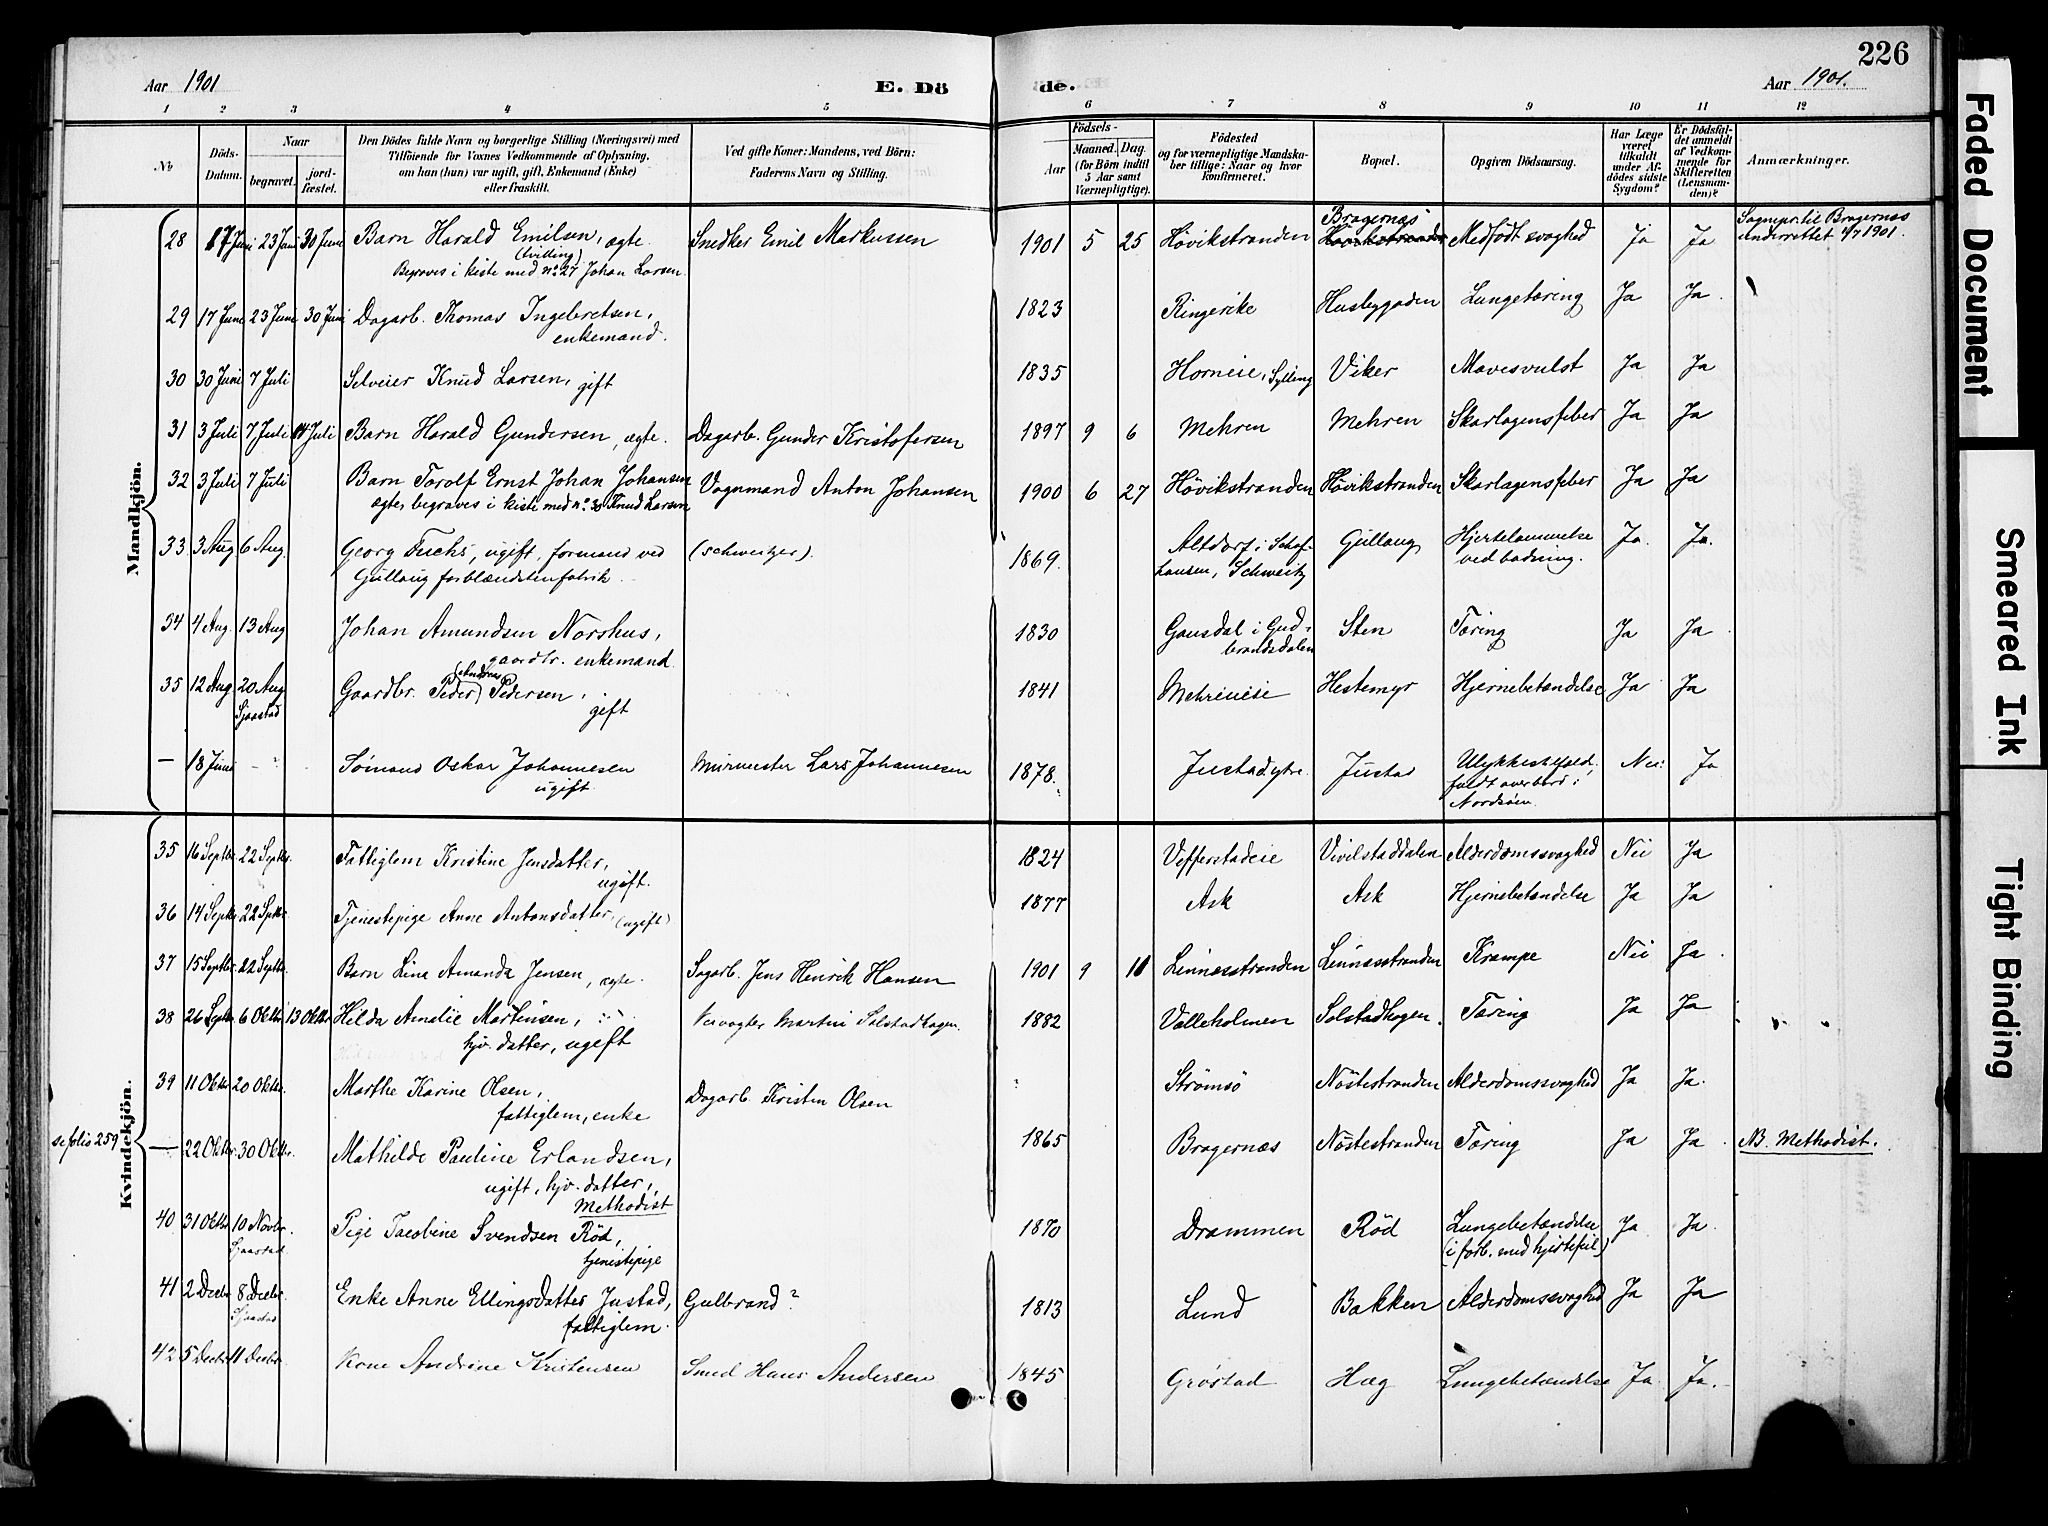 226
Aar 1901
E. Dö
de.
Aar 1901.
1 2 3 4 5 6 7 8 9 10 11 12
№
Döds-
Datum.
Naar
begravet.
jord-
fæstet.
Den Dödes fulde Navn og borgerlige Stilling (Næringsvei) med
Tilföiende for Voxnes Vedkommende af Oplysning,
om han (hun) var ugift, gift, Enkemand (Enke)
eller fraskilt.
Ved gifte Koner: Mandens, ved Börn:
Faderens Navn og Stilling.
Födsels-
Aar
Maaned.
Dag.
(for Börn indtil
5 Aar samt
Værnepligtige).
Födested
og for værnepligtige Mandska-
ber tillige: Naar og hvor
konfirmeret.
Bopæl.
Opgiven Dödsaarsag.
Har Læge
været
tilkaldt
under Af-
dödes sidste
Sygdom?
Er Dödsfal-
det anmeldt
af Vedkom-
mende for
Skifteretten
(Lensman-
den)?
Anmærkninger.
Mandkjön.
28 17 Juni 23 Juni 30 Juni Barn Harald Emilsen, ægte. Snedker Emil Markussen 1901 5 25 Høvikstranden Bragernæs Høvikstranden Medfødt svaghed Ja Ja Sognepr. til Bragernæs
(tvilling) underrettet 4/7 1901.
Begraves i kiste med no. 27 Johan Larsen.
29 17 Juni 23 Juni 30 Juni Dagarb. Thomas Ingebretsen, 1823 Ringerike Husbygaden Lungetæring Ja Ja.
enkemand.
30 30 Juni 7 Juli Selveier Knud Larsen, gift 1835 Horneie, Sylling Viker Mavesvulst Ja Ja
31 3 Juli 7 Juli 14 Juli Barn Harald Gundersen, ægte. Dagarb. Gunder Kristofersen 1897 9 6 Mehren Mehren Skarlagensfeber Ja Ja
32 3 Juli 7 Juli Barn Torolf Ernst Johan Johansen Vognmand Anton Johansen 1900 6 27 Høvikstranden Høvikstranden Skarlagensfeber Ja Ja
ægte, begraves i kiste med no. 30 Knud Larsen
33 3 Aug 6 Aug. Georg Fuchs, ugift, formand ved (schweitzer). 1869. Altdorf i Schaf- Gullaug Hjertelammelse Ja. Ja.
Gullaug forblændstenfabrik. hausen, Schweitz ved badning.
34 4 Aug. 13 Aug Johan Amundsen Norshus, 1830 Gausdal i Gud- Sten Tæring Ja Ja
gaardbr. enkemand. brandsdalen
35 12 Aug. 20 Aug Gaardbr. Peder Pedersen, 1841 Mehreneie Hestemyr Hjernebetændelse Ja Ja
Sjaastad gift
— 18 Juni Sømand Oskar Johannesen Murmester Lars Johannesen 1878. Justadytre. Justad Ulykkestilfæld, Nei Ja
ugift. faldt overbord i
Nordsøen.
Kvindekjön.
35 16 Septbr. 22 Septbr. Fattiglem Kristine Jensdatter, 1824 Vefferstadeie Vivelstaddalen Alderdomssvaghed Nei Ja
ugift.
36 14 Septbr. 22 Septbr. Tjenestepige Anne Antonsdatter, (ugift) 1877 Ask Ask Hjernebetændelse Ja Ja
37 15 Septbr. 22 Septbr. Barn Lina Amanda Jensen, ægte. Sagarb. Jens Henrik Hansen 1901 9 11 Linnæsstranden Linnæsstranden Krampe Nei Ja.
38 26 Septbr. 6 Oktbr. 13 Oktbr. Hilda Amalie Martinsen, Veivogter Martin Solstadhagen. 1882 Valleholmen Solstadhagen. Tæring Ja Ja
hjv. datter, ugift
39 11 Oktbr. 20 Oktbr. Marthe Karine Olsen, Dagarb. Kristen Olsen Strømsø Nøstestranden Alderdomssvaghed Ja Ja.
fattiglem, enke
se folio 259 — 22 Oktbr. 30 Oktbr. Mathilde Pauline Erlandsen, 1865 Bragernæs Nøstestranden Tæring Ja Ja. NB. Methodist.
ugift, hjv. datter,
Methodist
40 31 Oktbr. 10 Novbr. Pige Jacobine Svendsen Rød, 1870 Drammen Rød Lungebetændelse Ja. Ja.
Sjaastad tjenestepige (i forb. med hjertefeil)
41 2 Decbr. 8 Decbr. Enke Anne Ellingsdatter Justad, Gulbrand? 1813 Lund Bakken Alderdomssvaghed Ja Ja
Sjaastad fattiglem.
42 5 Decbr. 11 Decbr. Kone Andrine Kristensen Smed Hans Andersen 1845 Grøstad Hæg Lungebetændelse Ja. Ja.
Faded Document
Smeared Ink
Tight Binding